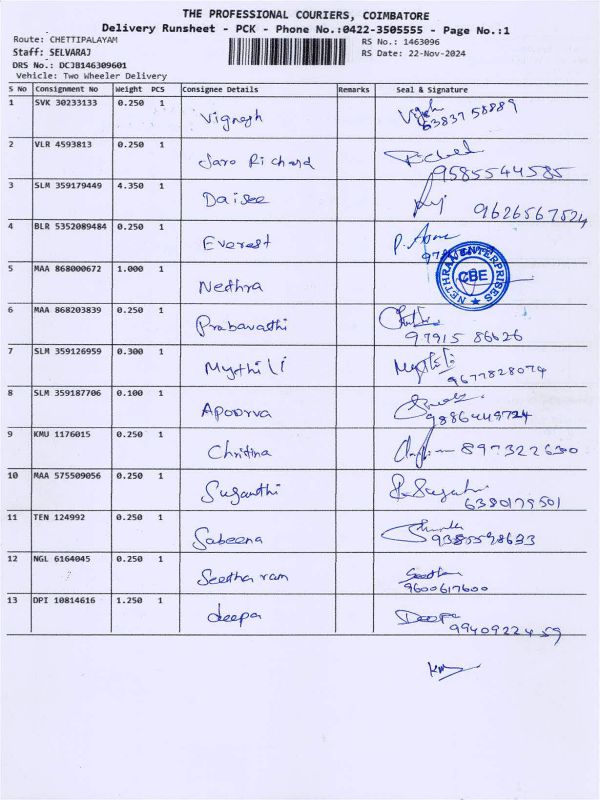 THE PROFESSIONAL COURIERS, COIMBATORE
Delivery Runsheet - PCK - Phone No.:0422-3505555 - Page No.:1
Route: CHETTIPALAYAM RS No.: 1463096
Staff: SELVARAJ RS Date: 22-Nov-2024
DRS No.: DCJB146309601
Vehicle: Two Wheeler Delivery
S No Consignment No Weight PCS Consignee Details Remarks Seal & Signature
1 SVK 30233133 0.250 1 Vignesh
63837 58889
2 VLR 4593813 0.250 1 Jaro Richard
9585544585
3 SLM 359179449 4.350 1 Daisee
9626567524
4 BLR 5352089484 0.250 1 Everest
NETHRAN ENTERPRISES
CBE
5 MAA 868000672 1.000 1 Nethra
6 MAA 868203839 0.250 1 Prabavathi
97915 86626
7 SLM 359126959 0.300 1 Mythili Mythili
9677828074
8 SLM 359187706 0.100 1 Apoorva
9886449724
9 KMU 1176015 0.250 1 Chritina 897322630
10 MAA 575509056 0.250 1 Suganthi
6380179501
11 TEN 124992 0.250 1 Sabeena
9385598633
12 NGL 6164045 0.250 1 Seetha ram
9600617600
13 DPI 10814616 1.250 1 deepa Deepa
9940922459